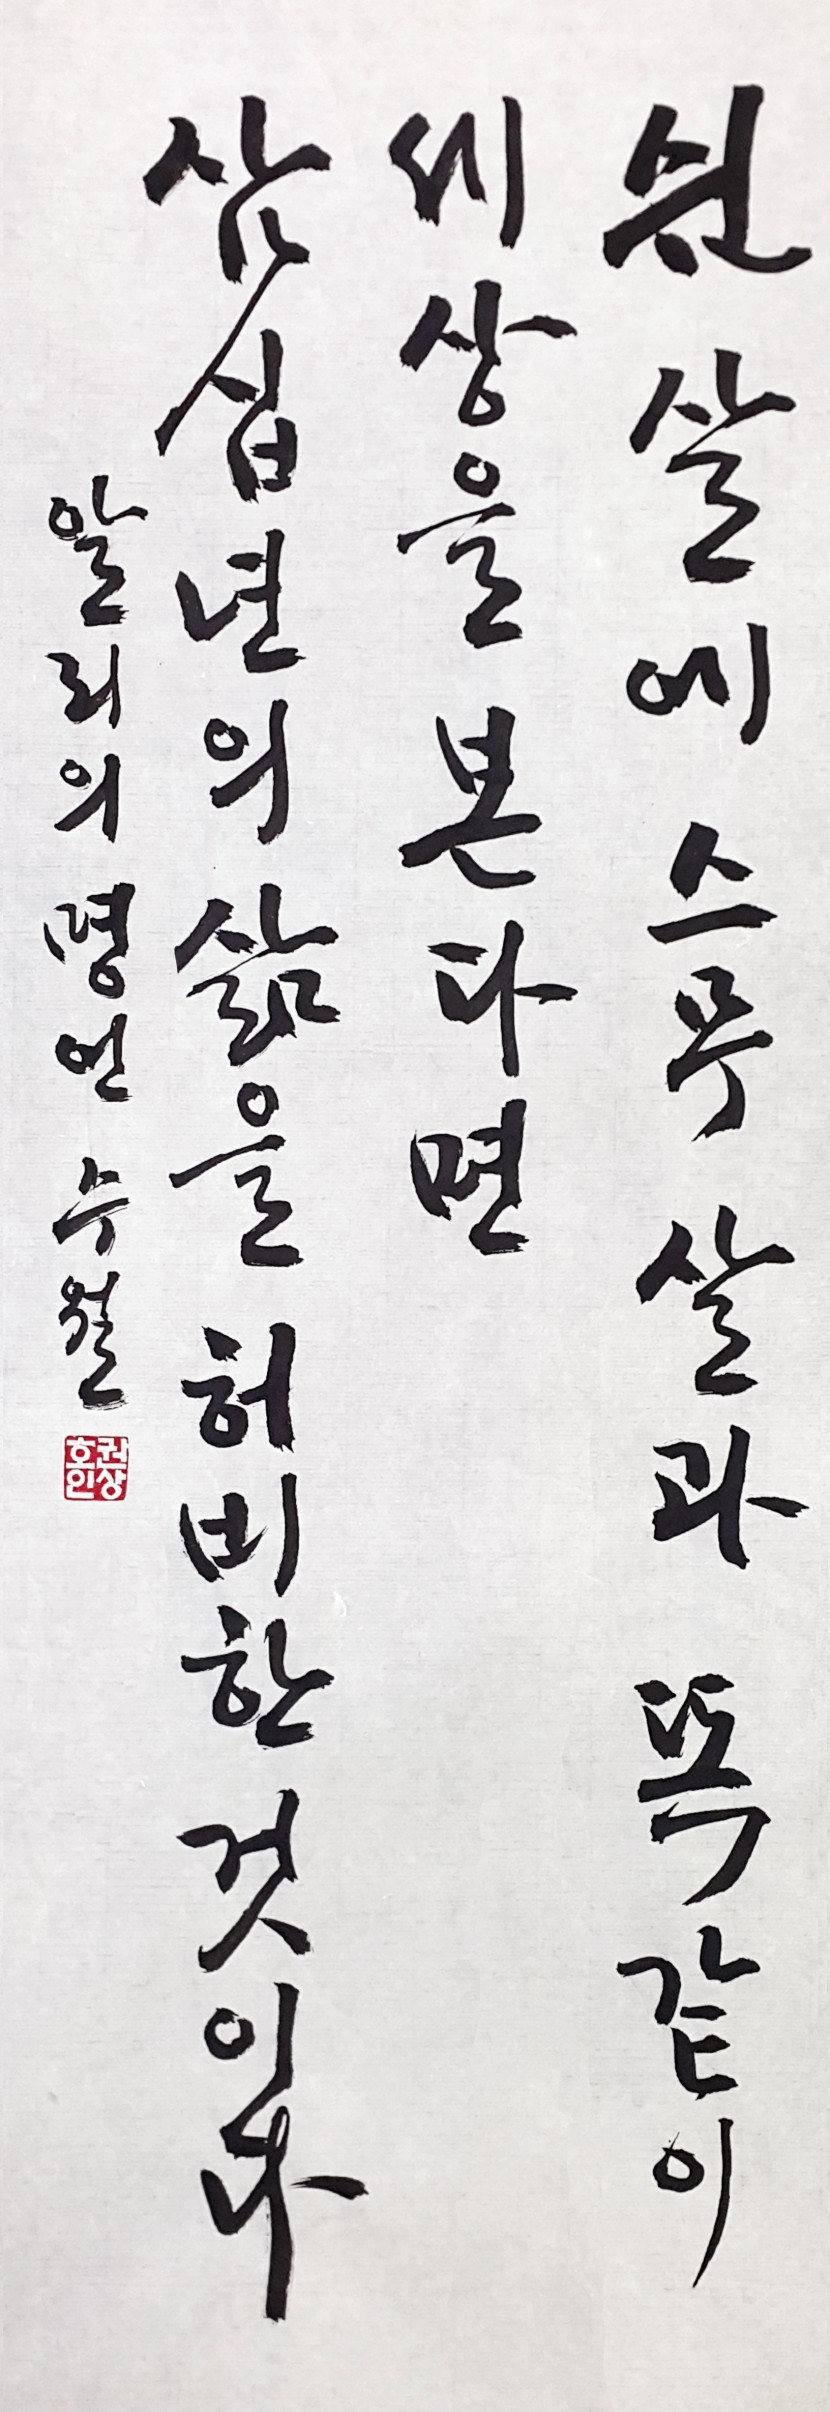 쉰 살에 스무 살과 똑같이
세상을 본다면
삼십년의 삶을 허비한 것이다
알리의 명언 수월
권상
호인